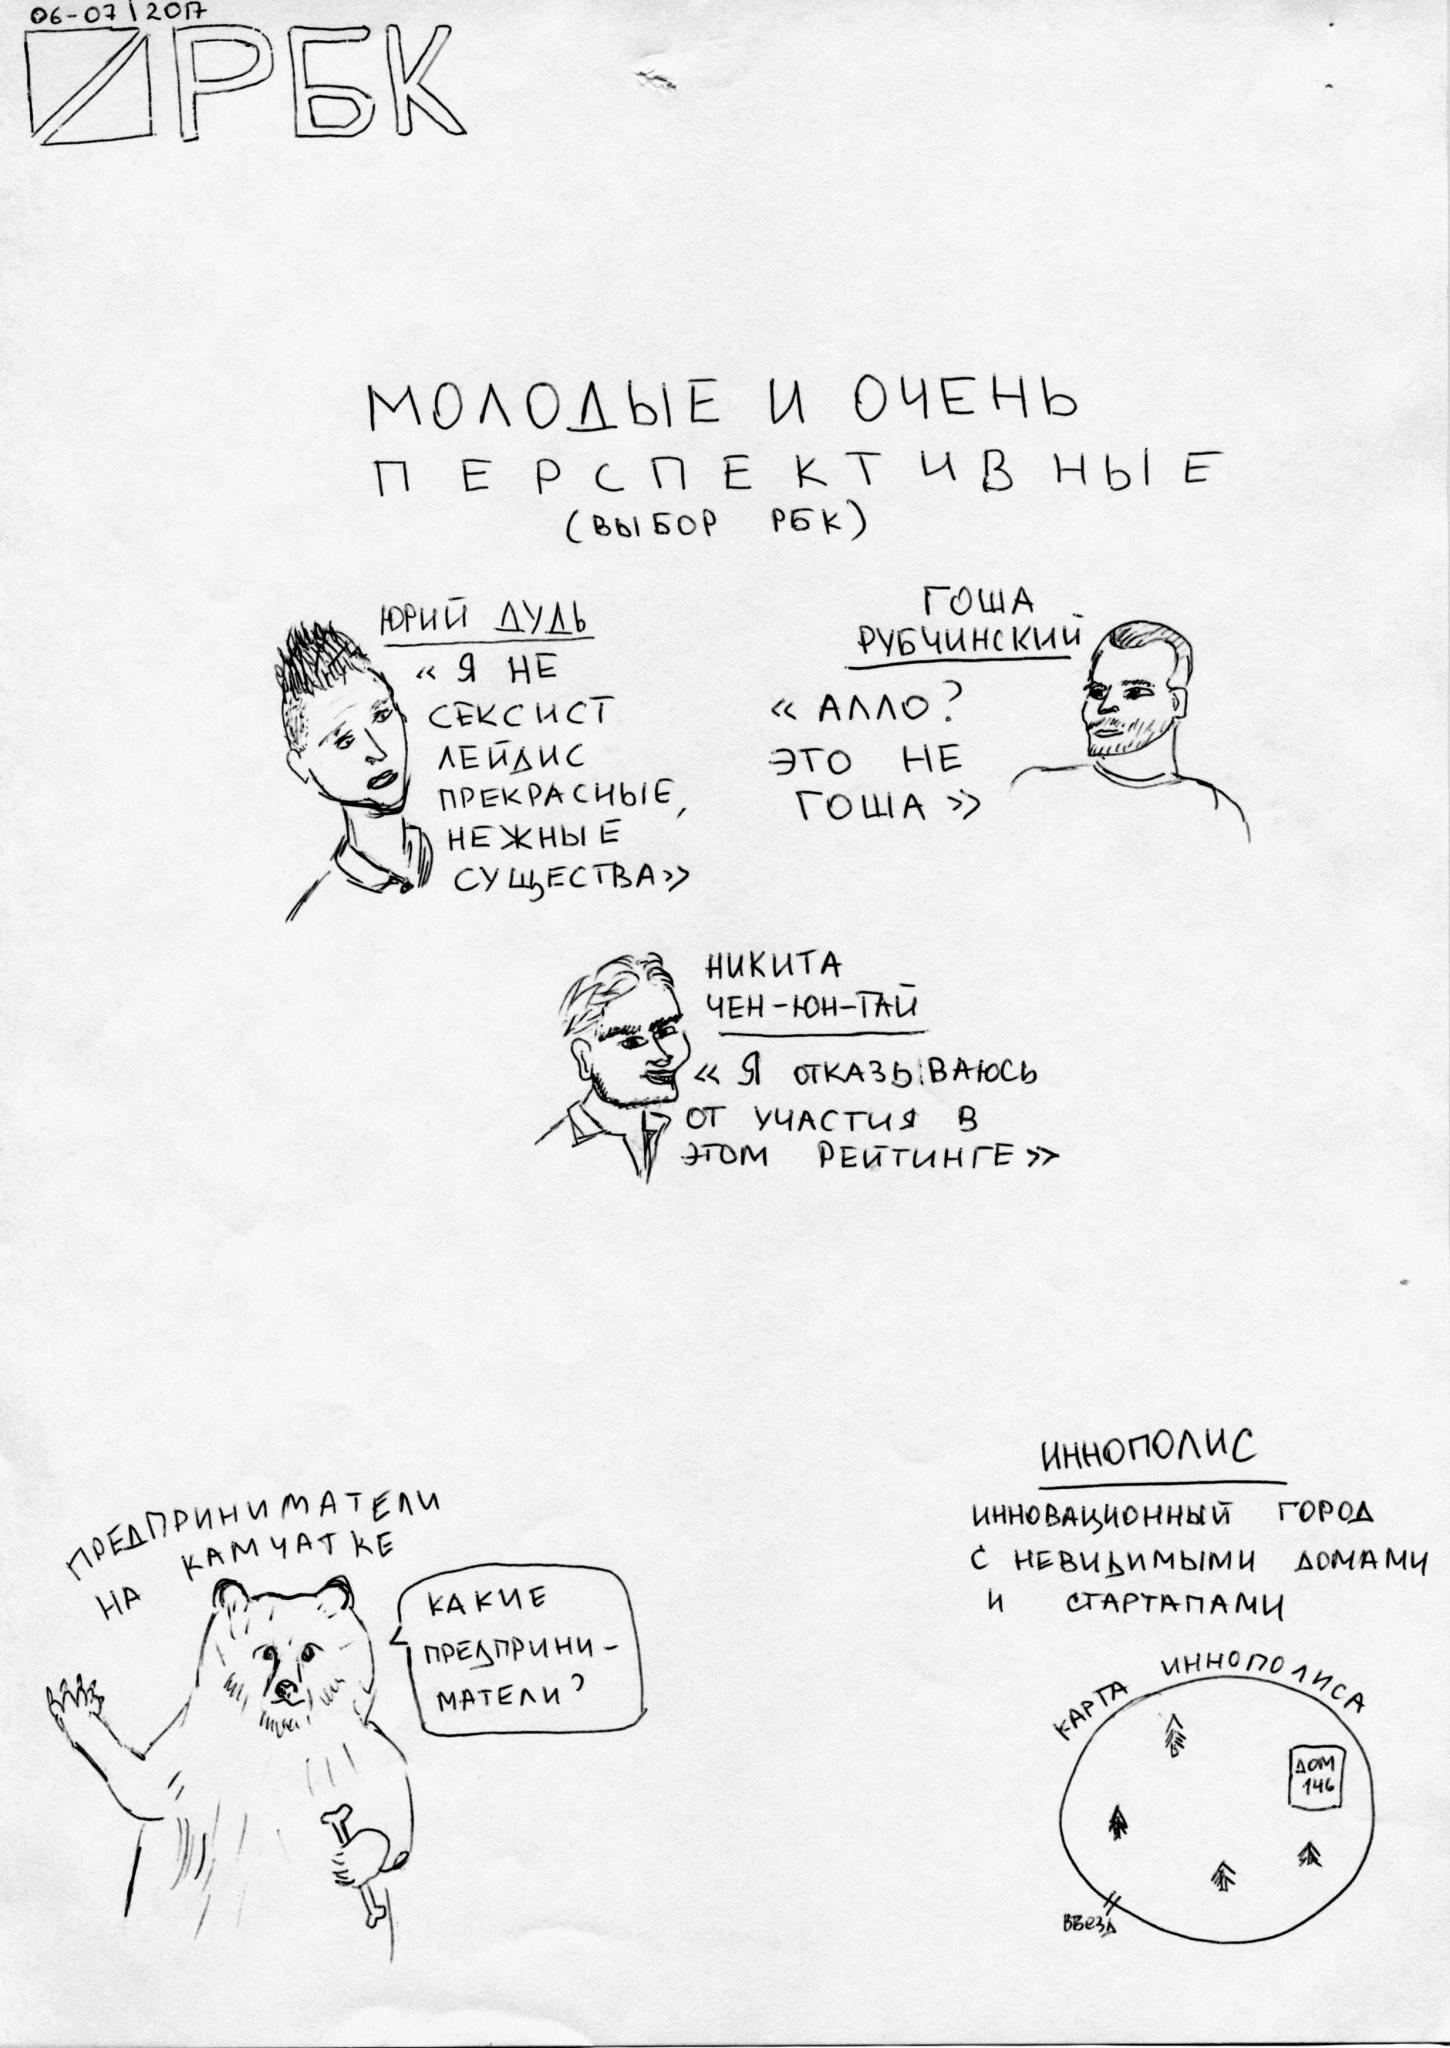 06-07 | 2017
РБК
МОЛОДЫЕ И ОЧЕНЬ
ПЕРСПЕКТИВНЫЕ
(ВЫБОР РБК)
ЮРИЙ ДУДЬ
« Я НЕ
СЕКСИСТ
ЛЕЙДИС
ПРЕКРАСНЫЕ,
НЕЖНЫЕ
СУЩЕСТВА»
ГОША
РУБЧИНСКИЙ
« АЛЛО?
ЭТО НЕ
ГОША »
НИКИТА
ЧЕН-ЮН-ТАЙ
« Я ОТКАЗЫВАЮСЬ
ОТ УЧАСТИЯ В
ЭТОМ РЕЙТИНГЕ»
ПРЕДПРИНИМАТЕЛИ
НА КАМЧАТКЕ
КАКИЕ
ПРЕДПРИНИ-
МАТЕЛИ?
ИННОПОЛИС
ИННОВАЦИОННЫЙ ГОРОД
С НЕВИДИМЫМИ ДОМАМИ
И СТАРТАПАМИ
КАРТА ИННОПОЛИСА
ДОМ
146
ВЪЕЗД